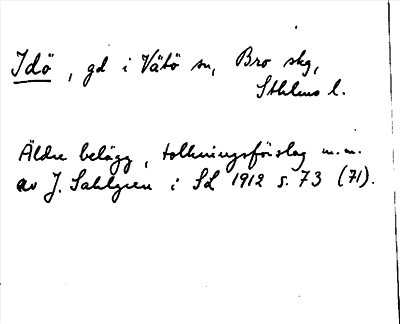 Idö, gd i Vätö sn, Bro skg,
Sthlms l.
Äldre belägg, tolkningsförslag m.m.
av J. Sahlgren i SL 1912 s. 73 (71).